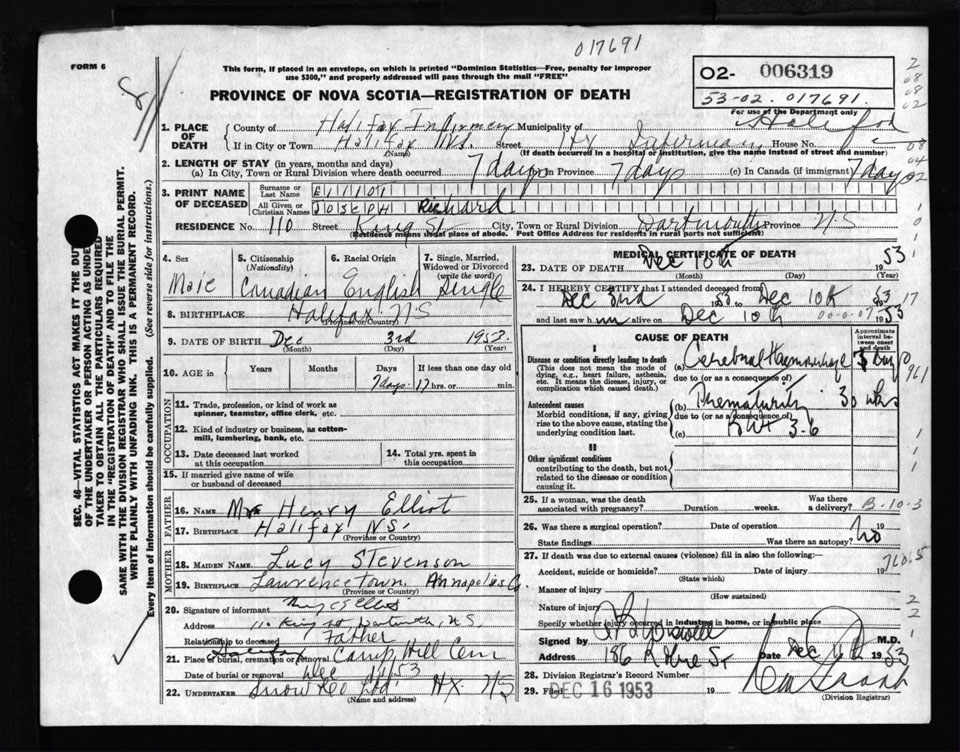 017691
FORM 6
This form, if placed in an envelope, on which is printed "Dominion Statistics—Free, penalty for improper
use $300," and properly addressed will pass through the mail "FREE"
02- 006319
53-02. 017691.
For use of the Department only
PROVINCE OF NOVA SCOTIA—REGISTRATION OF DEATH
1. PLACE OF DEATH
County of Halifax Municipality of
If in City or Town Halifax N.S. Street House No.
(Name) (If death occurred in a hospital or institution, give the name instead of street and number)
2. LENGTH OF STAY (in years, months and days)
(a) In City, Town or Rural Division where death occurred 7 days (b) In Province 7 days (c) In Canada (if immigrant) 7 days
3. PRINT NAME OF DECEASED
Surname or Last Name ELLIOT
All Given or Christian Names JOSEPH Richard
RESIDENCE No. 110 Street King St City, Town or Rural Division Dartmouth N.S
(Residence means usual place of abode. Post Office Address for residents in rural parts not sufficient)
4. Sex Male
5. Citizenship (Nationality) Canadian
6. Racial Origin English
7. Single, Married, Widowed or Divorced (write the word) Single
8. BIRTHPLACE Halifax N.S
(Province or Country)
9. DATE OF BIRTH Dec 3rd 1953
(Month) (Day) (Year)
10. AGE in Years Months Days If less than one day old
7 days 17 hrs. or min.
OCCUPATION
11. Trade, profession, or kind of work as
spinner, teamster, office clerk, etc.
12. Kind of industry or business, as cotton-
mill, lumbering, bank, etc.
13. Date deceased last worked
at this occupation
14. Total yrs. spent in
this occupation
15. If married give name of wife
or husband of deceased
FATHER
16. Name Henry Elliot
17. Birthplace Halifax N.S.
(Province or Country)
MOTHER
18. MAIDEN NAME Lucy Stevenson
19. BIRTHPLACE Lawrencetown Annapolis Co.
(Province or Country)
20. Signature of informant
Address 110 King St Dartmouth, N.S.
Relationship to deceased Father
21. Place of burial, cremation or removal Halifax Camp Hill Cem
Date of burial or removal Dec 11/53
22. UNDERTAKER Snow & Co Ltd. Hx. N.S
(Name and address)
MEDICAL CERTIFICATE OF DEATH
23. DATE OF DEATH Dec 10th 1953
(Month) (Day) (Year)
24. I HEREBY CERTIFY that I attended deceased from
Dec 3rd 1953 to Dec 10th 1953
and last saw him alive on Dec 10th 1953
00-0-07
17
CAUSE OF DEATH
Approximate interval between onset and death
I
Disease or condition directly leading to death
(This does not mean the mode of
dying, e.g., heart failure, asthenia,
etc. It means the disease, injury, or
complication which caused death.)
(a) Cerebral Haemorrhage
due to (or as a consequence of)
Antecedent causes
Morbid conditions, if any, giving
rise to the above cause, stating the
underlying condition last.
(b) Prematurity 30 wks
due to (or as a consequence of)
(c) 3-6
II
Other significant conditions
contributing to the death, but not
related to the disease or condition
causing it.
25. If a woman, was the death
associated with pregnancy? Duration weeks. Was there a delivery? B-10-3
26. Was there a surgical operation? Date of operation 19
State findings Was there an autopsy? no
27. If death was due to external causes (violence) fill in also the following:
Accident, suicide or homicide? Date of injury 19
(State which)
760.5
Manner of injury
(How sustained)
Nature of injury
Specify whether injury occurred in industry, in home, or in public place
Signed by M.D.
Address 186 Date Dec 1953
28. Division Registrar's Record Number
29. Filed DEC 16 1953 19
(Division Registrar)
SEC. 46—VITAL STATISTICS ACT MAKES IT THE DUTY
OF THE UNDERTAKER OR PERSON ACTING AS UNDER-
TAKER TO OBTAIN ALL THE PARTICULARS REQUIRED
IN THE "REGISTRATION OF DEATH" AND TO FILE THE
SAME WITH THE DIVISION REGISTRAR WHO SHALL ISSUE THE BURIAL PERMIT.
WRITE PLAINLY WITH UNFADING INK. THIS IS A PERMANENT RECORD.
Every item of information should be carefully supplied. (See reverse side for instructions.)